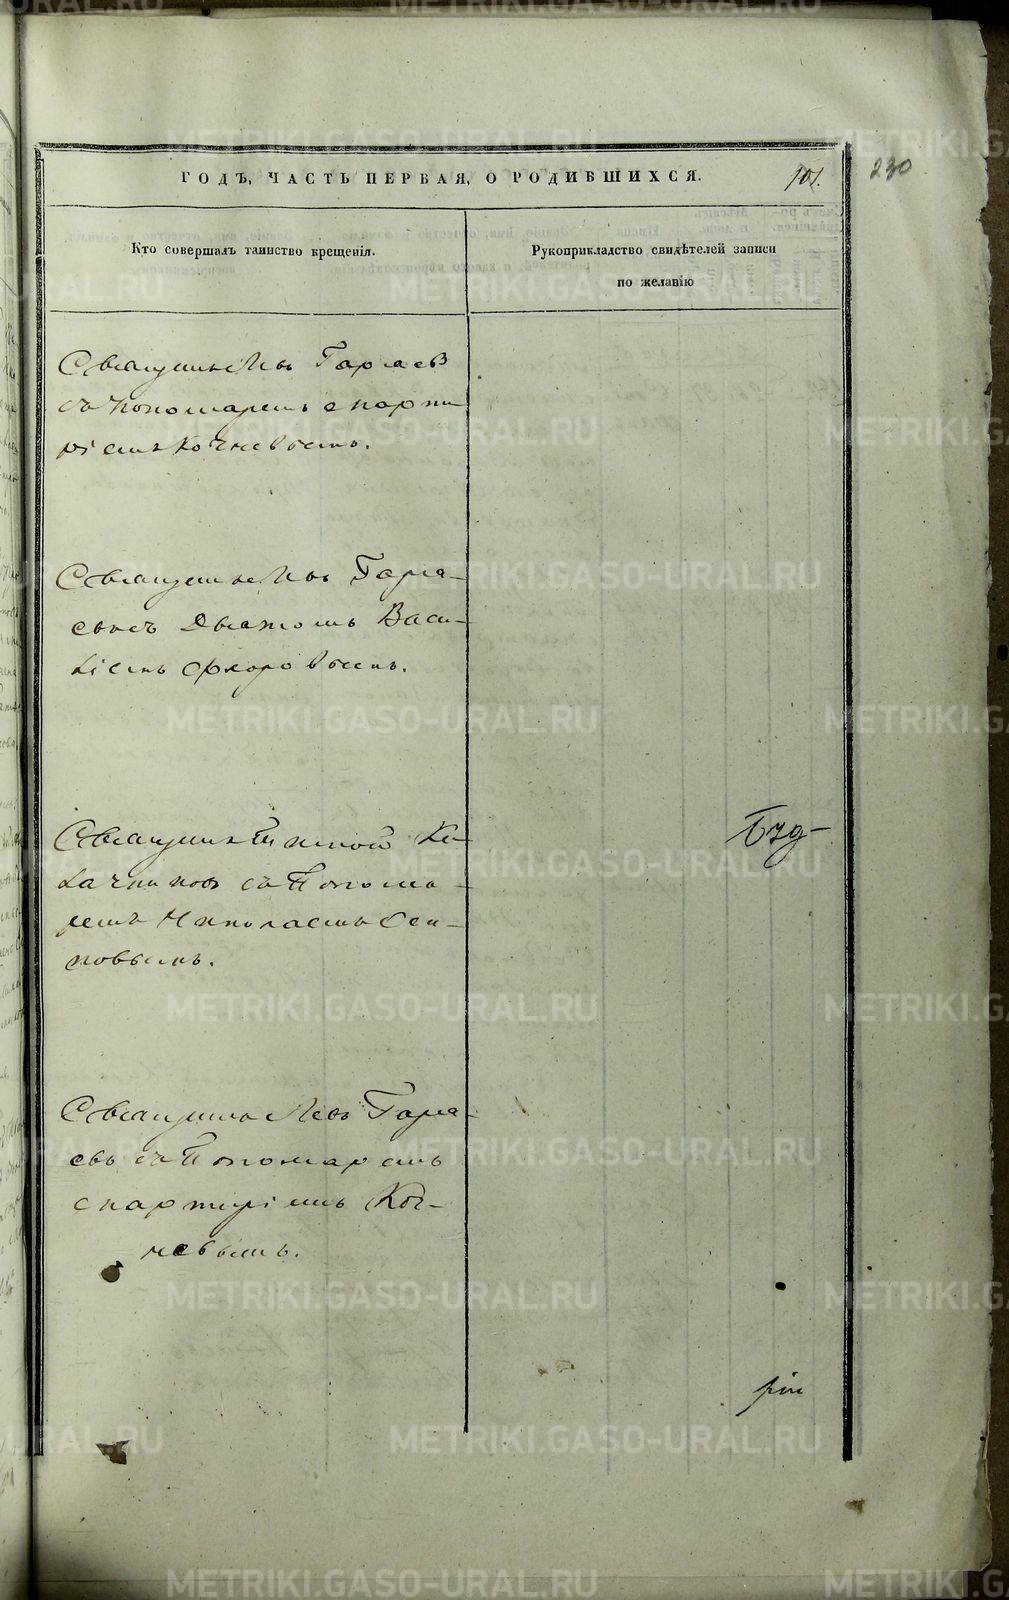 ГОДЪ, ЧАСТЬ ПЕРВАЯ, О РОДИВШИХСЯ.
101.
230
Кто совершалъ таинство крещенія.
Рукоприкладство свидѣтелей записи
по желанію
Священникъ Левъ Гаряевъ
съ пономаремъ Спирти-
ріемъ Кочневымъ.
Священникъ Левъ Гаря-
евъ съ Дьячкомъ Васи-
ліемъ Флоровымъ.
Священникъ Тимофей Ка-
лачниковъ съ Пономо-
ремъ Николаемъ Осип-
повымъ.
Священникъ Левъ Гаря-
евъ съ Пономаремъ
Спиртиріемъ Коч-
невымъ.
METRIKI.GASO-URAL.RU